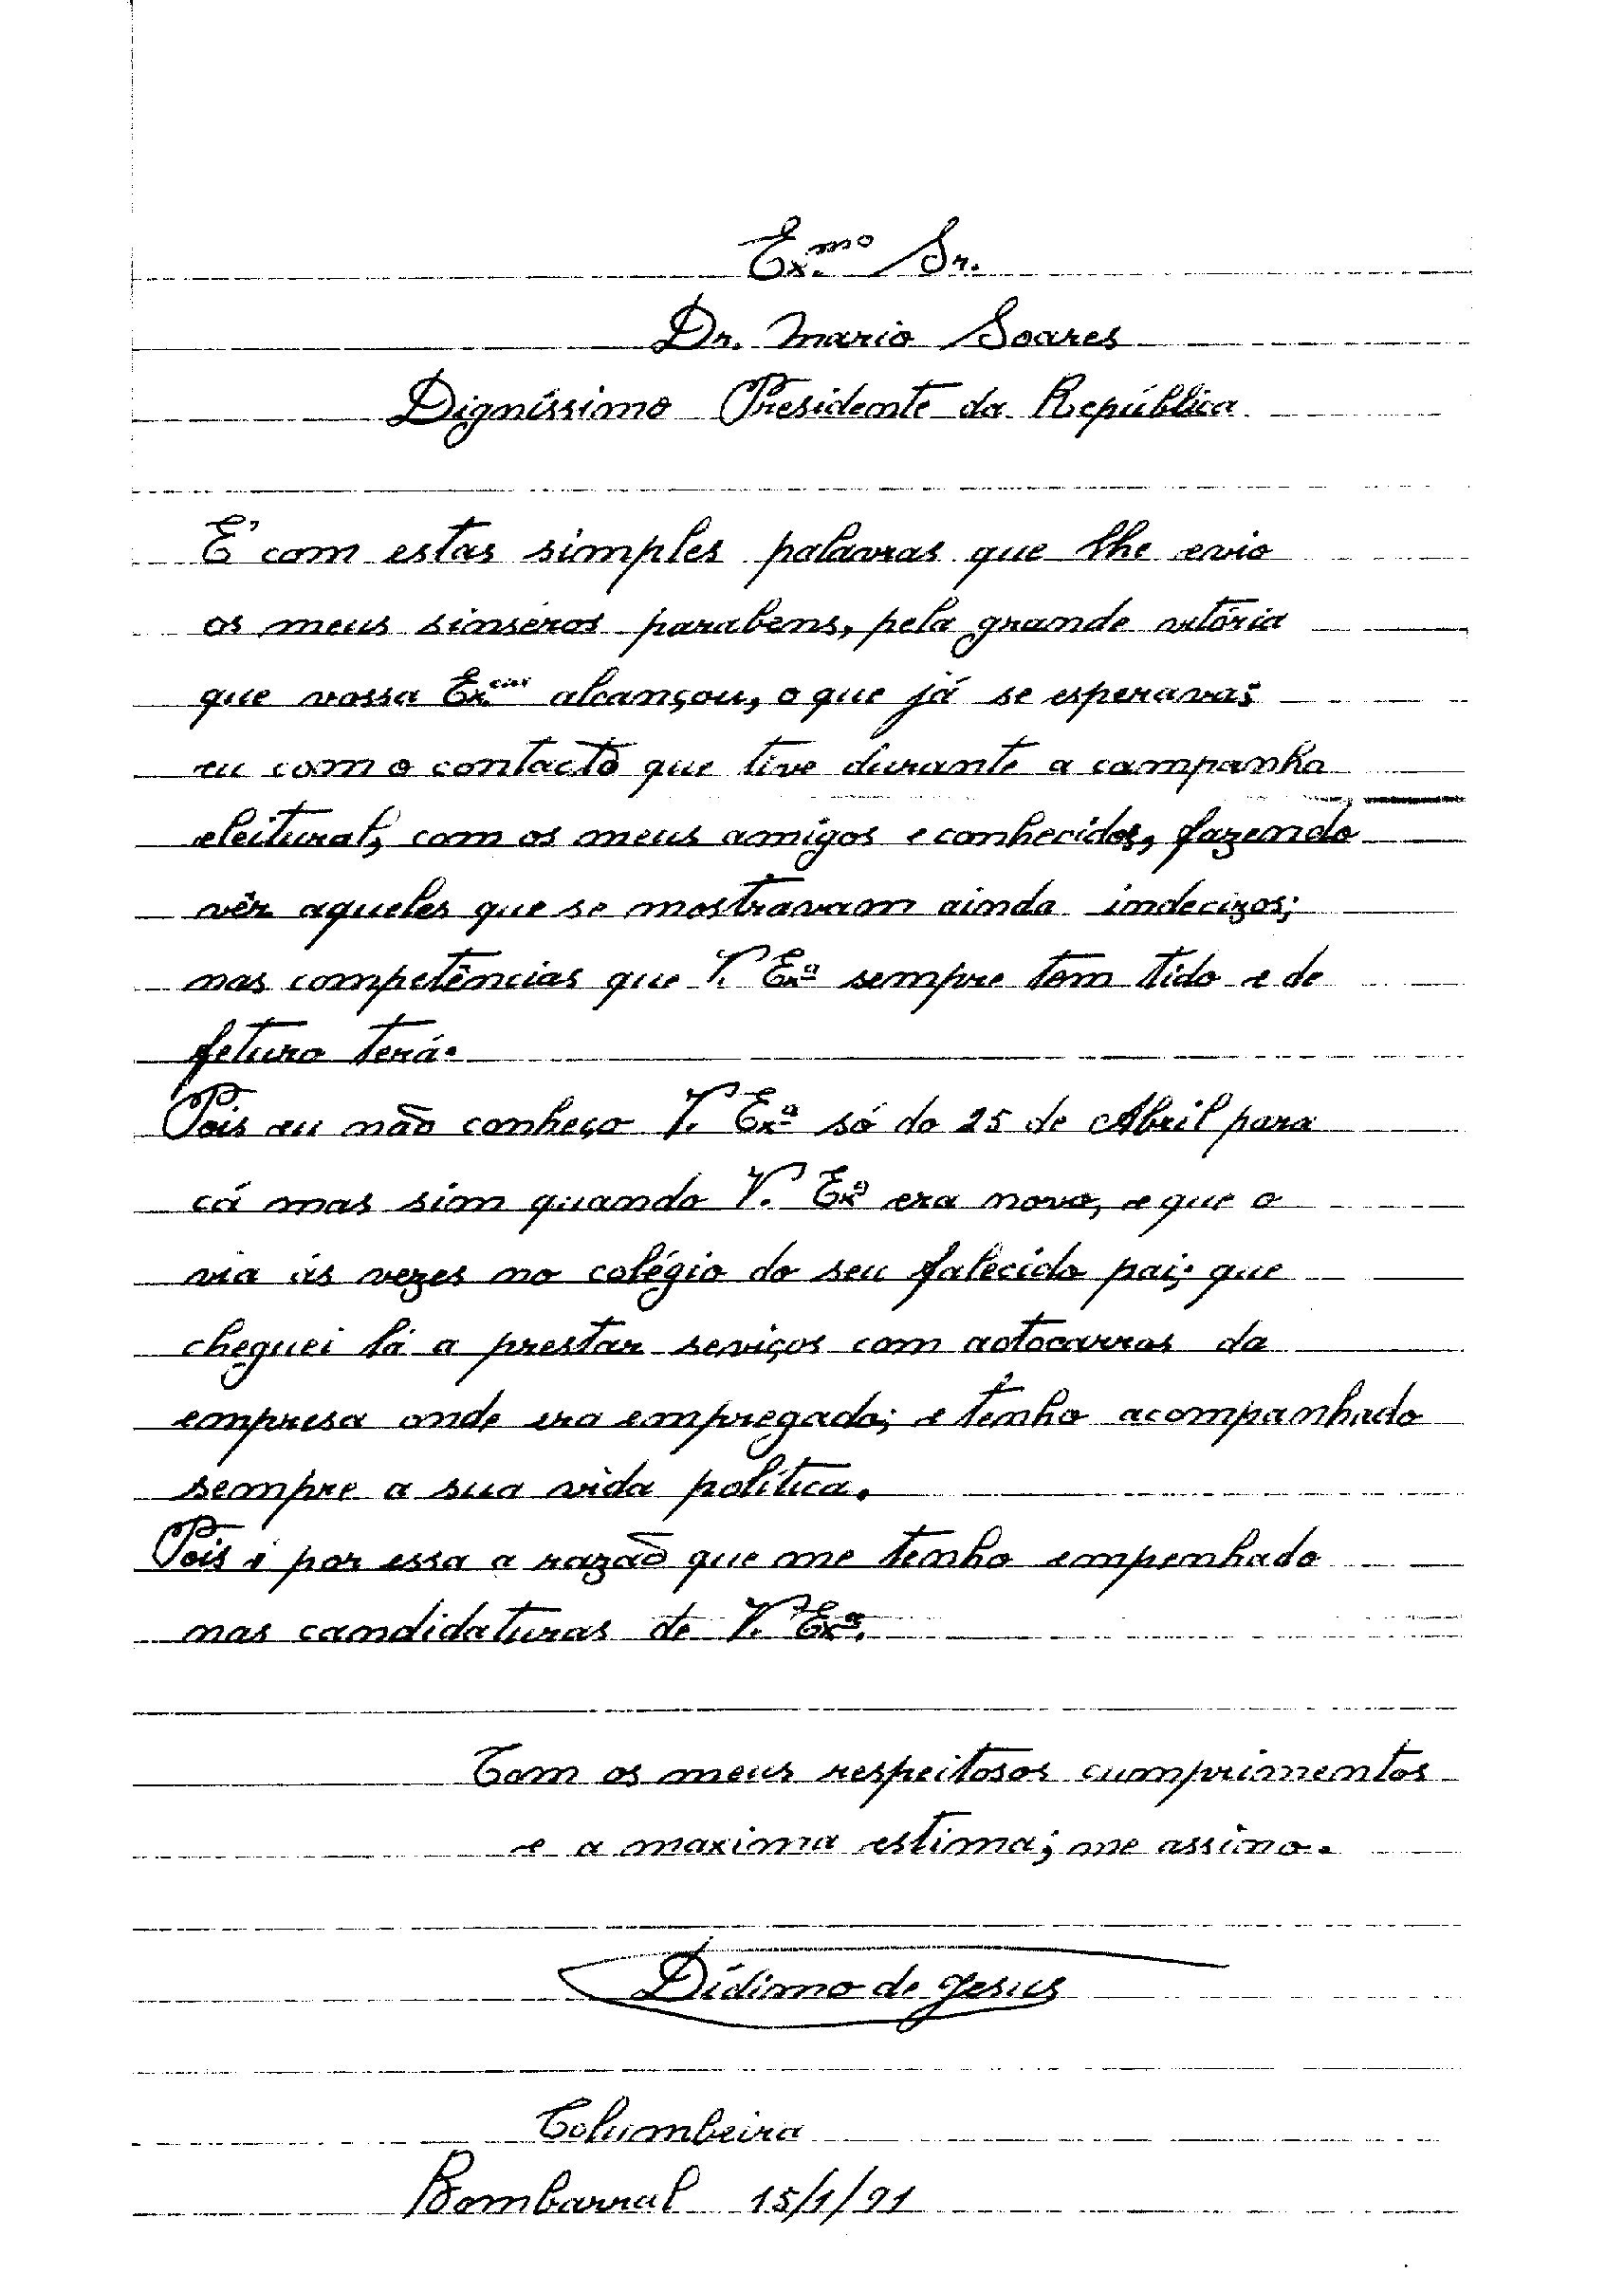 Ex.mo Sr.
Dr. Mario Soares
Digníssimo Presidente da República
E' com estas simples palavras que lhe evio
os meus sinseros parabens, pela grande vitória
que vossa Ex.cias alcançou, o que já se esperava;
eu com o contacto que tive durante a campanha
eleitural, com os meus amigos e conhecidos, fazendo
vêr aqueles que se mostravam ainda indecizos;
nas competências que V. Exª sempre tem tido e de
feturo terá.
Pois eu não conheço V. Exª só do 25 de Abril para
cá mas sim quando V. Exª era novo, e que o
via ás vezes no colégio do seu falecido pai; que
cheguei lá a prestar seviços com aotocarros da
empresa onde era empregado; e tenho acompanhado
sempre a sua vida política.
Pois é por essa a razão que me tenho empenhado
nas candidaturas de V. Exª.
Com os meus respeitosos cumprimentos
e a maxima estima; me assino.
Dídimo de Jesus
Columbeira
Bombarral 15/1/91